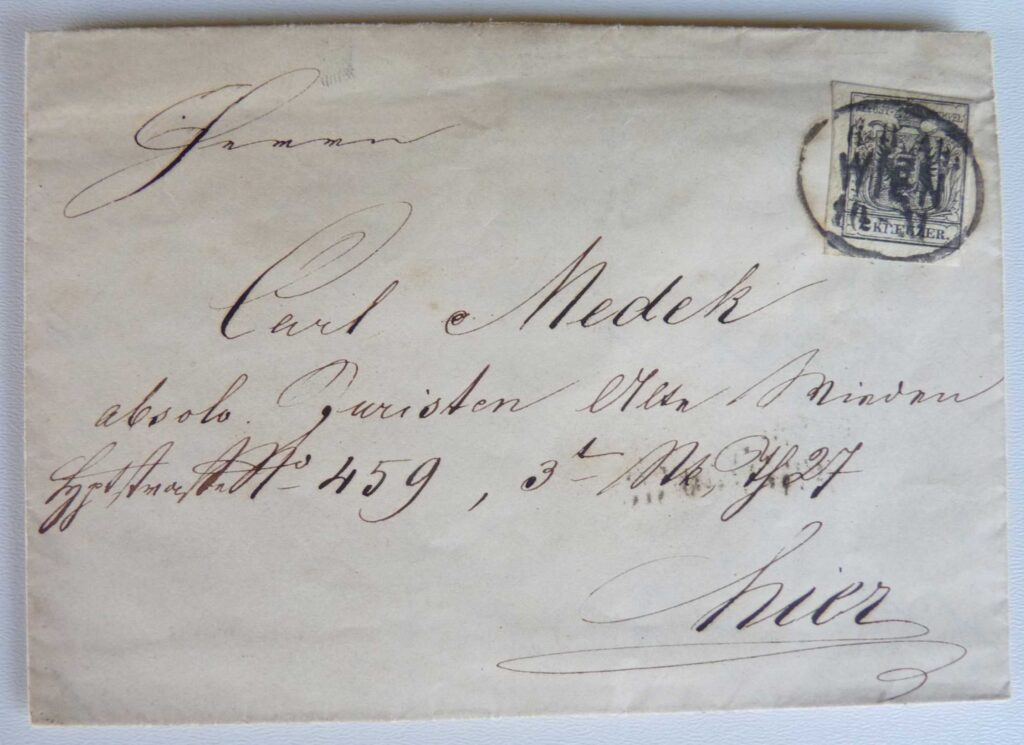 Herrn
Carl Medek
absolv. Juristen Alte Wieden
Hptstrasse No 459, 3t Stk, Th 27
hier
WIEN
KREUZER.